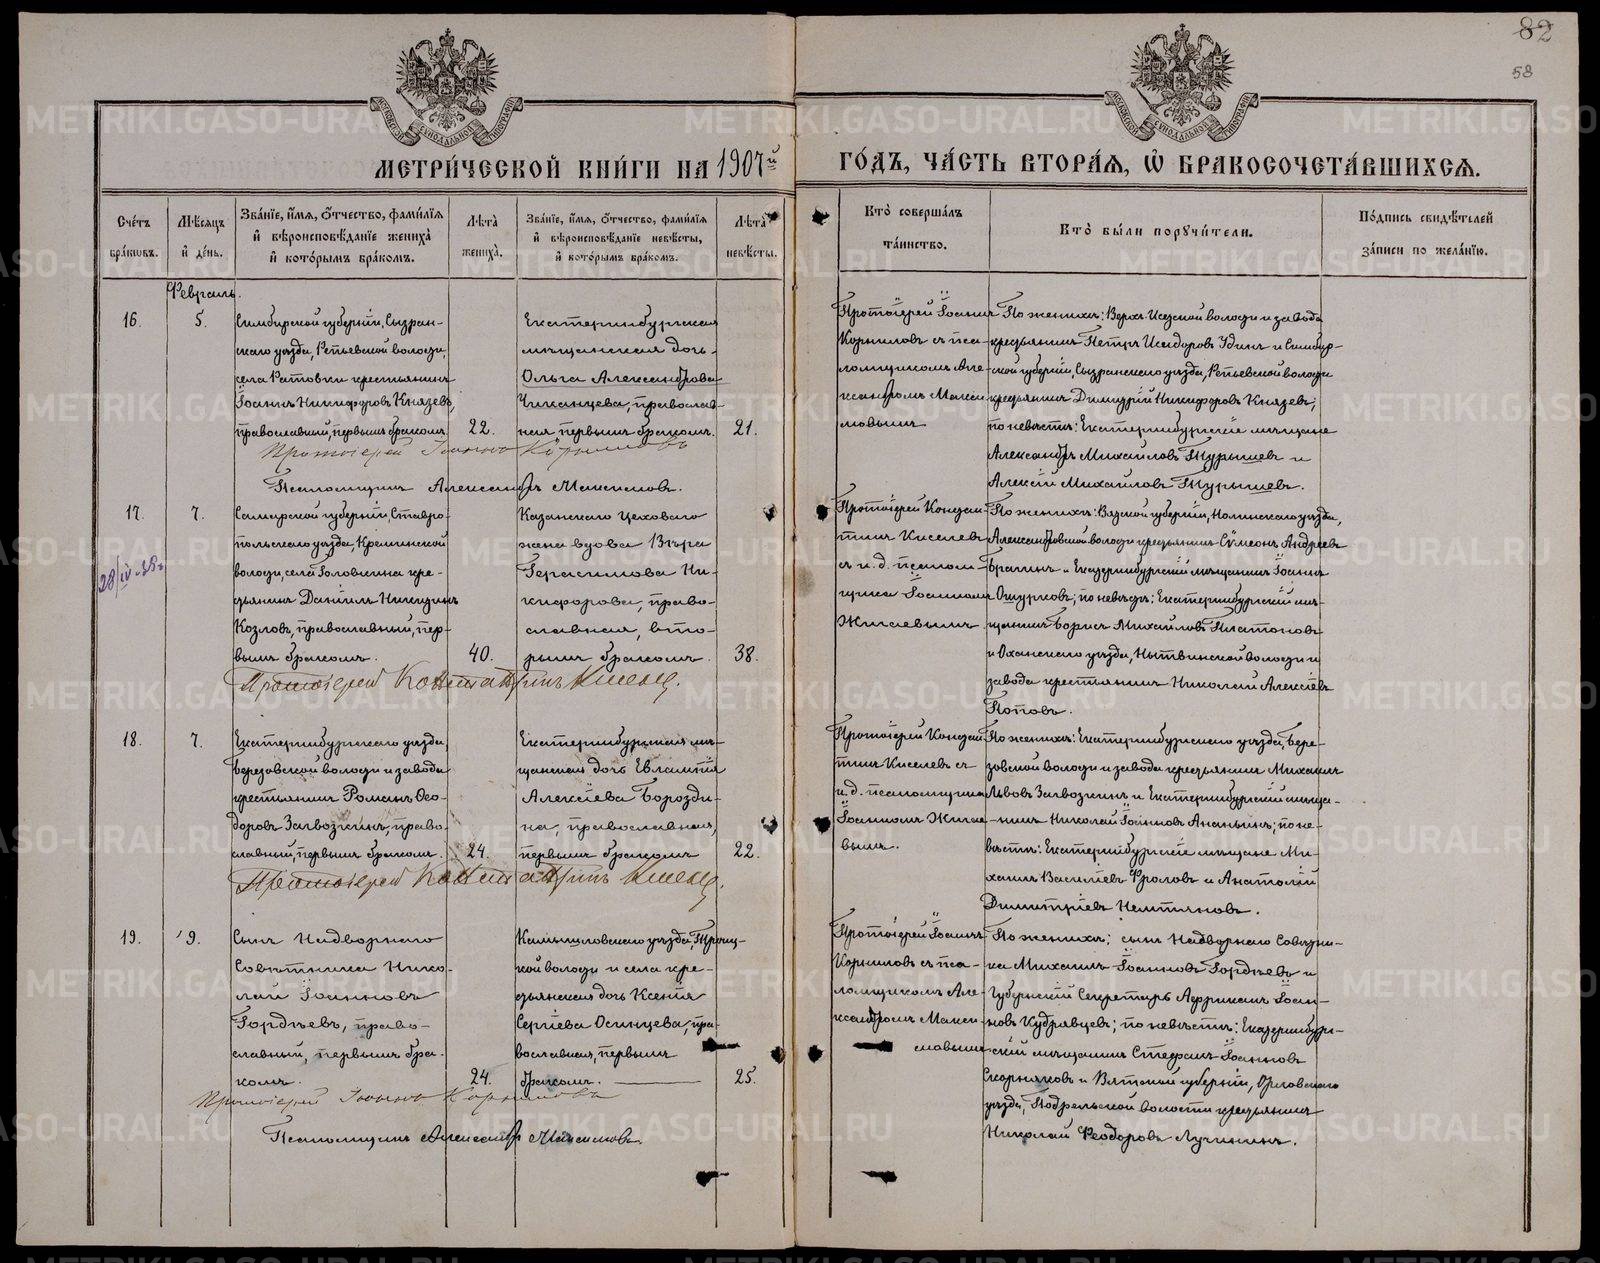 82
58
МЕТРИ́ЧЕСКОЙ КНИ́ГИ НА 1907й
ГО́ДЪ, ЧА́СТЬ ВТОРА́Я, Ѡ БРАКОСОЧЕТА́ВШИХСЯ.
Сче́тъ бра́ковъ.
Мѣ́сяцъ и де́нь.
Зва́нїе, и́мя, о́тчество, фами́лїя и вѣроисповѣ́данїе жениха̀ и кото́рымъ бра́комъ.
Лѣ́та жениха̀.
Зва́нїе, и́мя, о́тчество, фами́лїя и вѣроисповѣ́данїе невѣ́сты, и кото́рымъ бра́комъ.
Лѣ́та невѣ́сты.
Кто̀ соверша́лъ та́инство.
Кто̀ бы́ли поручи́тели.
По́дпись свидѣ́телей за́писи по жела́нїю.
Февраль.
16.
5.
Симбирской губернiи, Сызран-
скаго уѣзда, Репьевской волости,
села Ратовки крестьянинъ
Iоаннъ Никифоровъ Князевъ,
православный, первымъ бракомъ.
22.
Екатеринбургская
мѣщанская дочь
Ольга Александрова
Чиканцева, православ-
ная первымъ бракомъ.
21.
Протоiерей Iоаннъ
Корниловъ съ пса-
ломщикомъ Але-
ксандромъ Макси-
мовымъ
По женихѣ: Верхъ-Исетской волости и завода
крестьянинъ Петръ Исидоровъ Удинъ и Симбир-
ской губернiи, Сызранскаго уѣзда, Репьевской волости
крестьянинъ Димитрiй Никифоровъ Князевъ;
по невѣстѣ: Екатеринбургскiе мѣщане
Александръ Михайловъ Турышевъ и
Алексiй Михайловъ Турышевъ.
Протоiерей Iоаннъ Корниловъ
Псаломщикъ Александръ Максимовъ.
17.
7.
28/IV-38г.
Самарской губернiи, Ставро-
польскаго уѣзда, Кременской
волости, села Головкина кре-
стьянинъ Данiилъ Никитинъ
Козловъ, православный, пер-
вымъ бракомъ.
40.
Казанскаго цеховаго
жена вдова Вѣра
Герасимова Ни-
кифорова, право-
славная, вто-
рымъ бракомъ.
38.
Протоiерей Констан-
тинъ Киселевъ
съ и.д. псалом-
щика Iоанномъ
Жилевымъ
По женихѣ: Вятской губернiи, Нолинскаго уѣзда,
Александровской волости крестьянинъ Сѵмеонъ Андреевъ
Брагинъ и Екатеринбургскiй мѣщанинъ Iоаннъ
Ошурковъ; по невѣстѣ: Екатеринбургскiй мѣ-
щанинъ Борисъ Михайловъ Платоновъ
и Оханскаго уѣзда, Нытвинской волости и
завода крестьянинъ Николай Алексѣевъ
Поповъ.
Протоiерей Константинъ Киселевъ.
18.
7.
Екатеринбургскаго уѣзда,
Березовской волости и завода
крестьянинъ Романъ Ѳео-
доровъ Загвозкинъ, право-
славный, первымъ бракомъ.
24.
Екатеринбургская мѣ-
щанская дочь Евлампiя
Алексiева Борозди-
на, православная,
первымъ бракомъ
22.
Протоiерей Констан-
тинъ Киселевъ съ
и.д. псаломщика
Iоанномъ Жиле-
вымъ.
По женихѣ: Екатеринбургскаго уѣзда, Бере-
зовской волости и завода крестьянинъ Михаилъ
Львовъ Загвозкинъ и Екатеринбургскiй мѣща-
нинъ Николай Iоанновъ Ананьинъ; по не-
вѣстѣ: Екатеринбургскiе мѣщане Ми-
хаилъ Василiевъ Фроловъ и Анатолiй
Димитрiевъ Немтиновъ.
Протоiерей Константинъ Киселевъ.
19.
9.
Сынъ Надворнаго
Совѣтника Нико-
лай Iоанновъ
Гордѣевъ, право-
славный, первымъ бра-
комъ.
24.
Камышловскаго уѣзда, Троиц-
кой волости и села кре-
стьянская дочь Ксенiя
Сергiева Осинцева, пра-
вославная, первымъ
бракомъ.
25.
Протоiерей Iоаннъ
Корниловъ съ пса-
ломщикомъ Але-
ксандромъ Макси-
мовымъ
По женихѣ: сынъ Надворнаго Совѣтни-
ка Михаилъ Iоанновъ Гордѣевъ и
Губернскiй Секретарь Африканъ Iоан-
новъ Кудрявцевъ; по невѣстѣ: Екатеринбург-
скiй мѣщанинъ Стефанъ Iоанновъ
Скорняковъ и Вятской губернiи, Орловскаго
уѣзда, Подрельской волости крестьянинъ
Николай Ѳеодоровъ Лучининъ.
Протоiерей Iоаннъ Корниловъ
Псаломщикъ Александръ Максимовъ.
METRIKI.GASO-URAL.RU